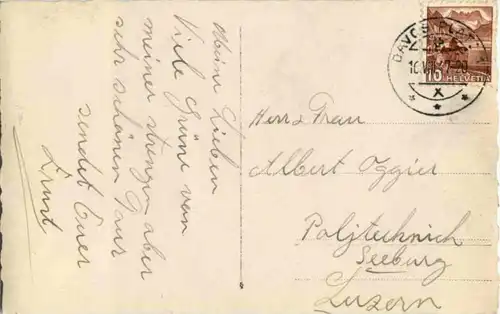 Meine Lieben
Viele Grüsse von
meiner strengen aber
sehr schönen Tour
sendet Euer
Ernst
DAVOS PLATZ
10 HELVETIA
X
Herr & Frau
Albert Oggier
Polytechnich
Seeburg
Luzern